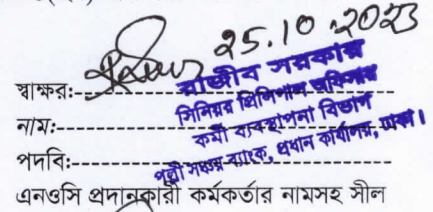 25.10.2023
স্বাক্ষর:
রাজীব সরকার
নাম:
সিনিয়র প্রিন্সিপাল অফিসার
কর্মী ব্যবস্থাপনা বিভাগ
পদবি:
পল্লী সঞ্চয় ব্যাংক, প্রধান কার্যালয়, ঢাকা।
এনওসি প্রদানকারী কর্মকর্তার নামসহ সীল